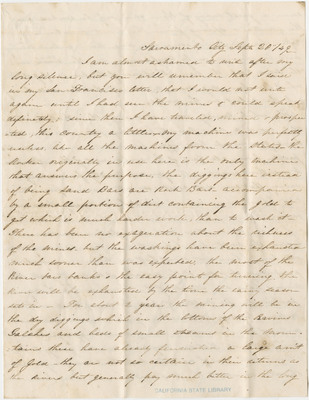 Sacramento City Sept 20/49
I am almost ashamed to write after my
long silence, but you will remember that I said
in my San Francisco letter that I would not write
again until I had seen the mines & could speak
definitely, since then I have traveled, mined & prospec
ted, this country a little my machine was perfectly
useless as all the machines from the States the
Rocker originally in use here is the only machine
that answers the purpose. The diggings here instead
of being Sand Bars are Rock Bars, accompanied
by a small portion of dirt containing the gold to
get which is much harder work, than to wash it.
There has been no exaggeration about the richness
of the mines. but the washings have been exhausted
much sooner than was expected the most of the
River bar banks & the easy points for turning the
River will be exhausted by the time the rainy season
sets in. For about a year the mining will be in
the dry diggings which in the bottom of the Ravines
Gulches and beds of small streams in the moun-
tains these have already furnished a large amt
of Gold they are not so certain in their returns as
the rivers but generally pay much better in the long
CALIFORNIA STATE LIBRARY